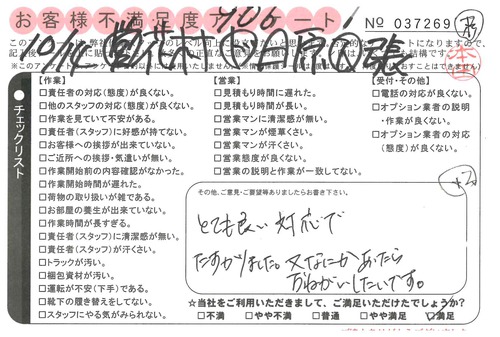 お客様不満足度アンケート
706
No 037269
【作業】
□責任者の対応(態度)が良くない。
□他のスタッフの対応(態度)が良くない。
□作業を見ていて不安がある。
□責任者(スタッフ)に好感が持てない。
□お客様への挨拶が出来ていない。
□ご近所への挨拶・気遣いが無い。
□作業開始前の内容確認がなかった。
□作業開始時間が遅れた。
□荷物の取り扱いが雑である。
□お部屋の養生が出来ていない。
□作業時間が長すぎる。
□責任者(スタッフ)に清潔感が無い。
□責任者(スタッフ)が汗くさい。
□トラックが汚い。
□梱包資材が汚い。
□運転が不安(下手)である。
□靴下の履き替えをしてない。
□スタッフにやる気がみられない。
【営業】
□見積もり時間に遅れた。
□見積もり時間が長い。
□営業マンに清潔感が無い。
□営業マンが煙草くさい。
□営業マンが汗くさい。
□営業態度が良くない。
□営業の説明と作業が一致してない。
【受付・その他】
□電話の対応が良くない。
□オプション業者の説明
・作業が良くない。
□オプション業者の対応
(態度)が良くない。
チェックリスト
その他、ご意見・ご要望等ありましたらお書き下さい。
とても良い対応で
たすかりました。又なにかあったら
おねがいしたいです。
☆当社をご利用いただきまして、ご満足いただけたでしょうか?
□不満 □やや不満 □普通 □やや満足 □満足